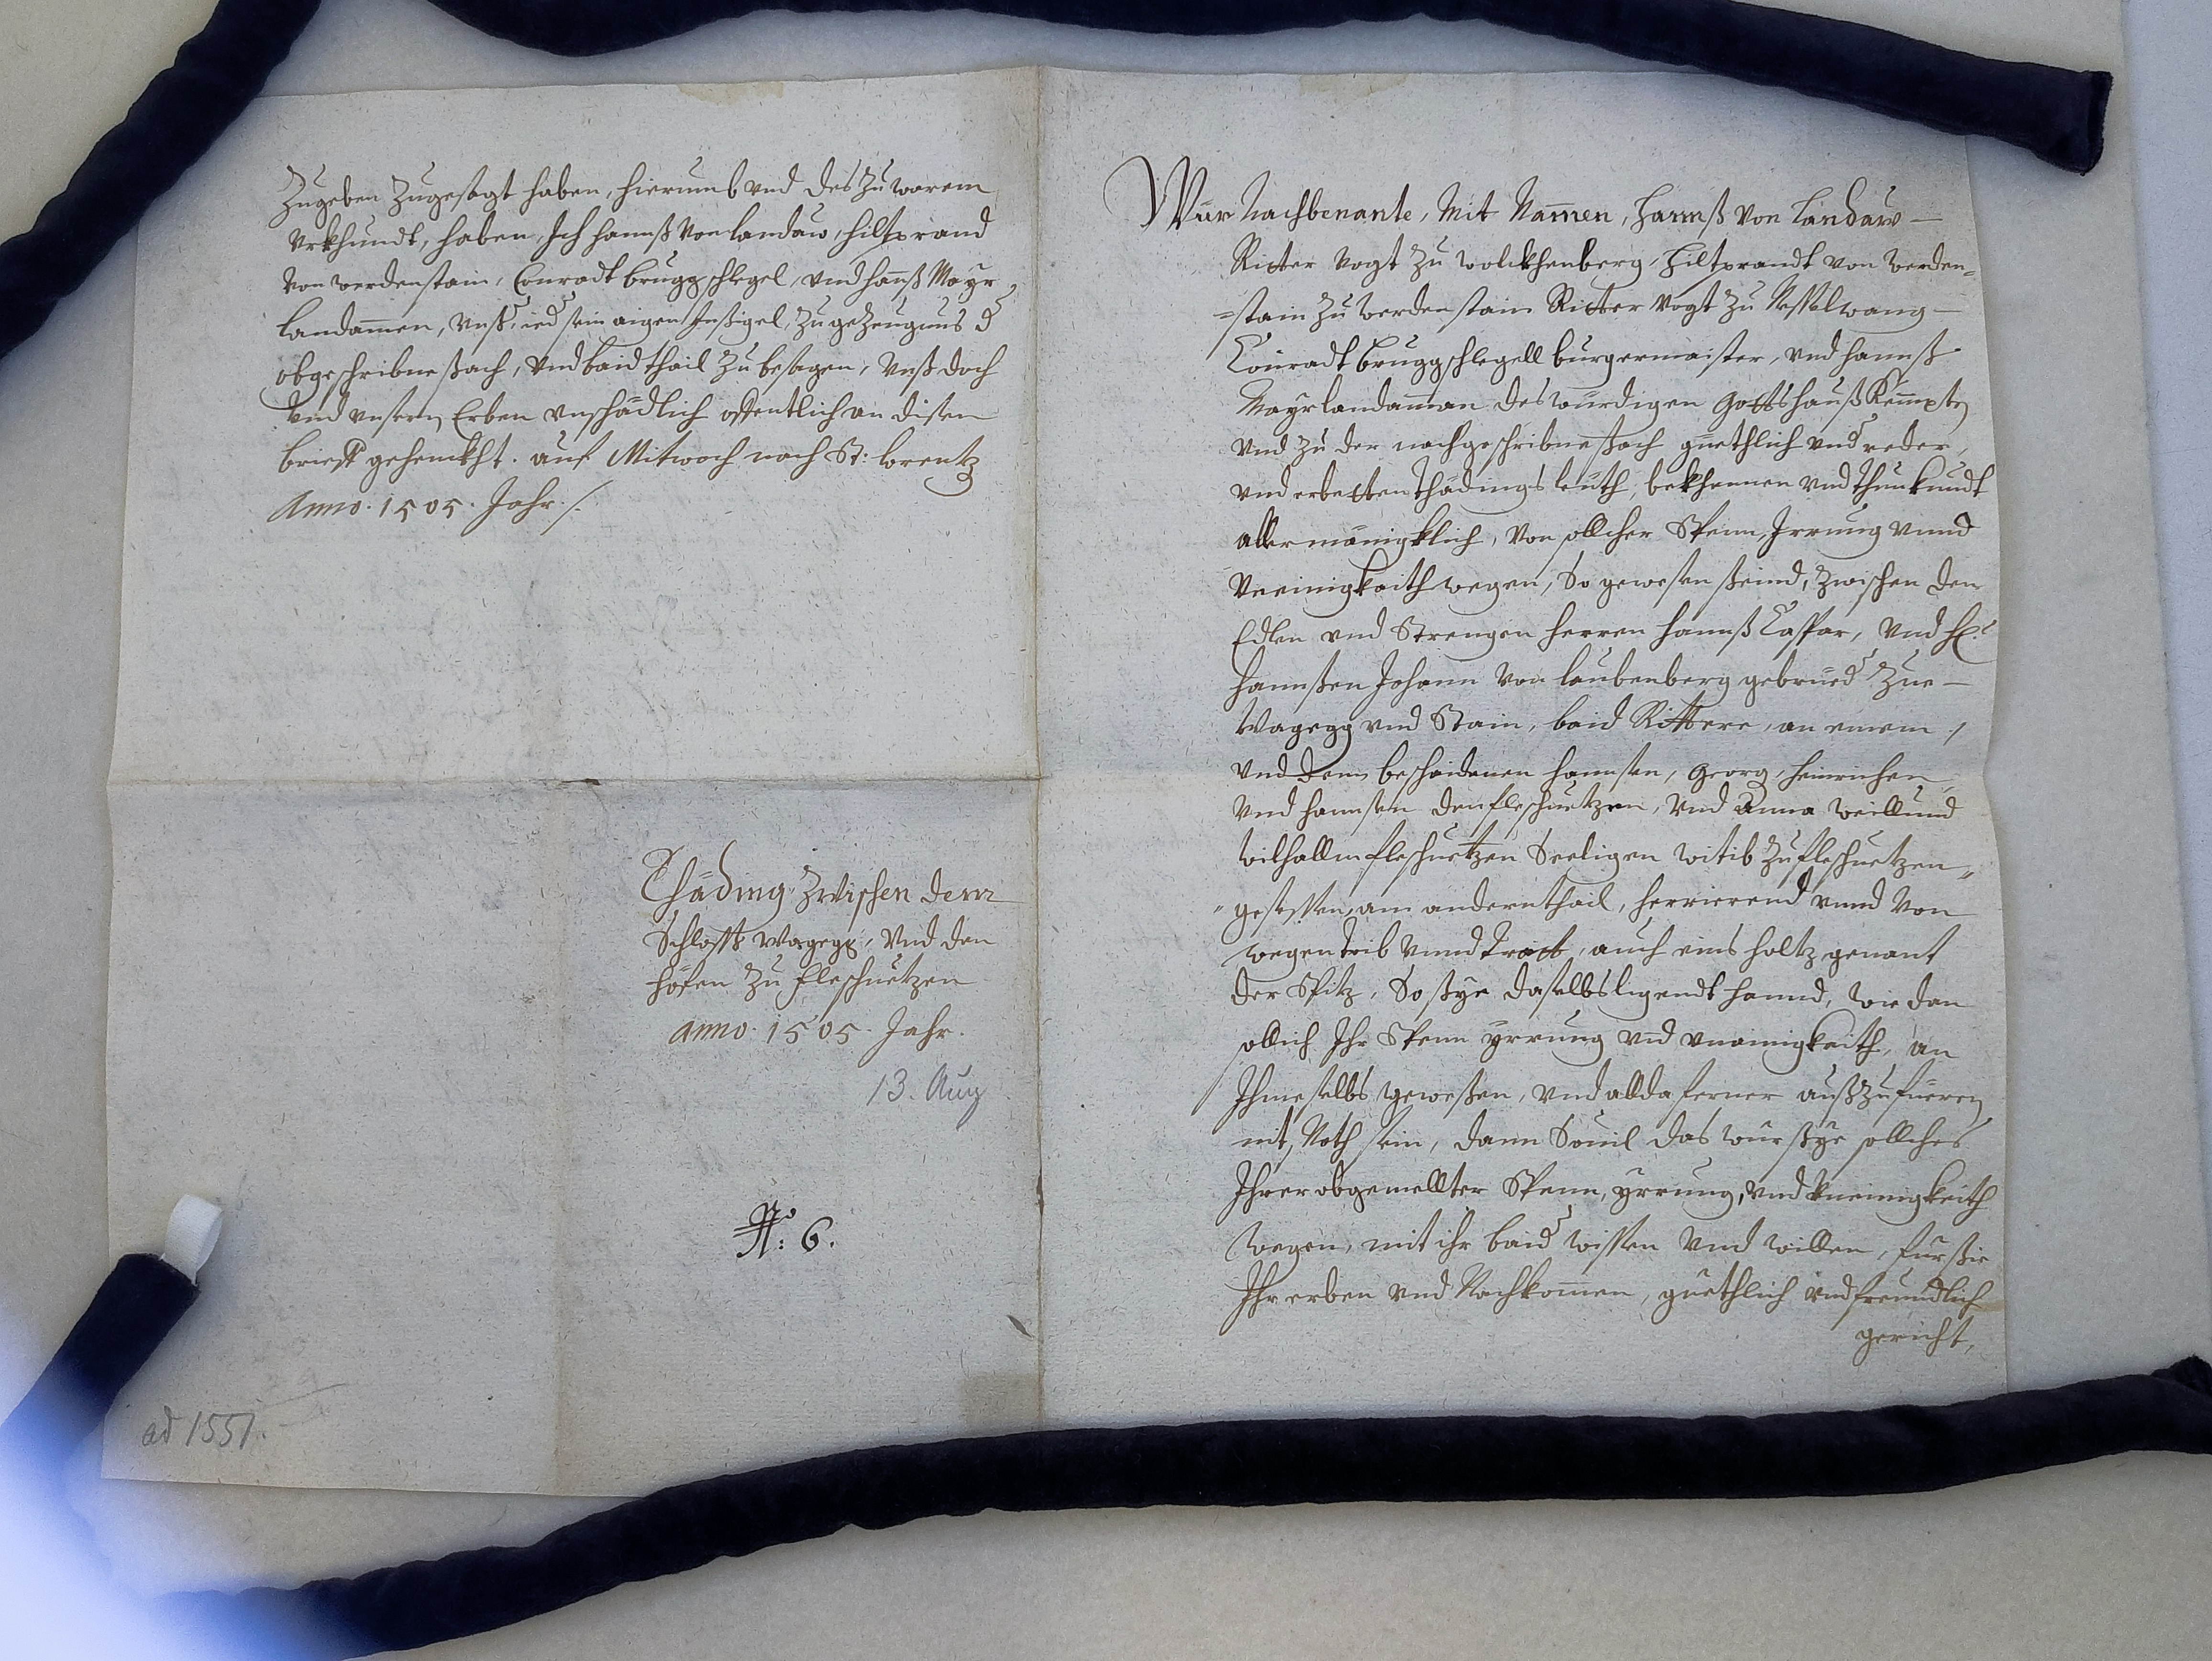 Zugeben Zugesagt haben, hierumb vnd des Zu warem
Vrkhundt, haben, Ich Hannß von Landaw, Hiltprand
von werdenstain, Conradt bruggschlegel, vnd Hanß Mayr
Landammen, vnß, ied sein aigen Insigel, Zu geZeugnus d
obgeschribne sach, vnd baid thail Zu besagen, vnß doch
vnd vnsern Erben vnschädlich offentlich an disen
brieff gehenckht. auf Mitwoch nach St: Lorentz
Anno. 1505. Jahr./.
Thäding Zwischen dem
Schloss Wagegg, Vnd den
Höfen Zu fleschuetzen
anno. 1505. Jahr.
13. Aug
No: 6.
ad 1551.
Wür Nachbenante, Mit Namen, Hannß von Landaw –
Ritter Vogt Zu wolckhenberg, Hiltprandt von werden=
=stain Zu werdenstain Ritter Vogt Zu Nesselwang –
Conradt bruggschlegell burgermaister, vnd Hannß
Mayr landamman des würdigen Gottshauß Kempten
Vnd Zu der nachgeschribne sach guethlich vndreder,
vnd erbetten thädings leuth, bekhennen vnd thun kundt
aller mänigklich, von sollcher Spenn, Irrung vnnd
Vneinigkaith wegen, So gewesen seind, Zwischen den
Edlen vnd Strengen Herren Hannß Caspar, vnd H:
Hannßen Johann von Laubenberg gebrued Zue –
Wagegg vnd Stain, baid Rittere, an einem /
Vnd denn beschaidenen Hannsen, Georg, Heinrichen
Vnd Hannsen den fleschuetzen, vnd Anna weillund
wilhallm fleschuetzen Seeligen witib Zu fleschuetzen
gesessen, am andern thail, herrierend vnnd von
wegen trib vnnd tratt, auch eins holtz genant
der Spitz, So sye daselbs ligendt hannd, wie dan
sollich Ihr Spenn yrrung vnd vnainigkaith, an
Ihme selbs gewesen, vnd allda ferner außzufüeren
nit Noth sein, dann Souil das wür sye sollches
Ihrer obgemellter Spenn, yrrung, vnd vneinigkeith
wegen, mit ihr baid wissen vnd willen, für sie
Ihr erben vnd Nachkommen, guethlich vnd freundlich
gericht,